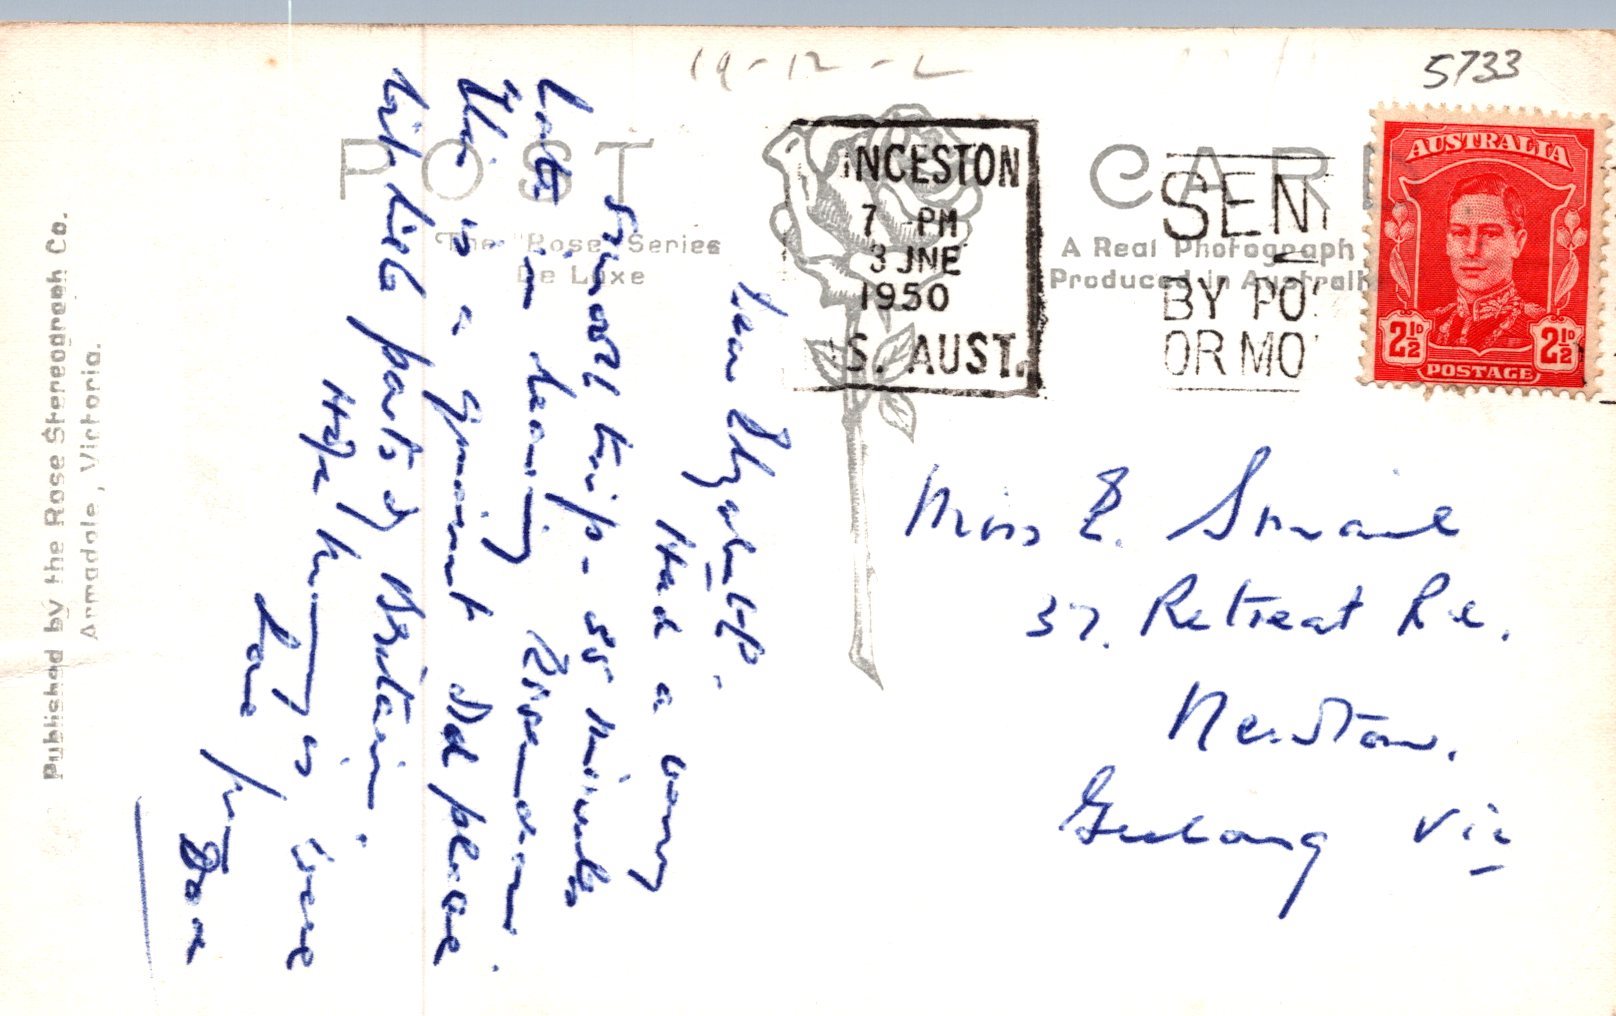 19-12-L
5733
POST CARD
The "Rose" Series
De Luxe
A Real Photograph
Produced in Australia
NCESTON
7 -PM
3 JNE
1950
S. AUST.
SEN
BY PO
OR MO
AUSTRALIA
2½D 2½D
POSTAGE
Published by the Rose Stereograph Co.
Armadale, Victoria.
Dear Elizabeth,
Had a very
smooth trip - 55 minutes
late in leaving Essendon.
This is a quaint old place
like parts of Britain.
Hope is well
Love from
Don
Miss E. Smaile
37. Retreat Rd.
Newtown.
Geelong Vic